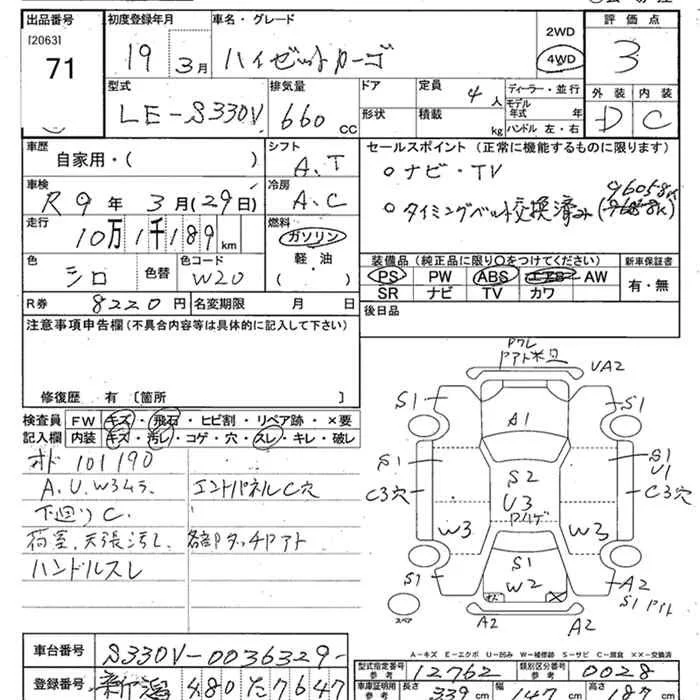 出品番号 初度登録年月 車名・グレード 評価点
[2063]
71
19 3月 ハイゼットカーゴ 2WD 4WD 3
型式 排気量 ドア 定員 ディーラー・並行 外装 内装
LE-S330V 660 CC 形状 積載 4人 kg モデル年式 年 ハンドル 左・右 D C
車歴 シフト セールスポイント (正常に機能するものに限ります)
自家用・( ) A.T ○ ナビ・TV
車検 冷房
R 9年 3月(29日) A.C 96058K
○ タイミングベルト交換済み(
走行 燃料
10万1千189km ガソリン 装備品(純正品に限り○をつけてください) 新車保証書
軽・油 PS PW ABS エアB AW 有・無
色 色替 色コード ( ) SR ナビ TV カワ
シロ W20
R券 8220円 名変期限 月 日 後日品
注意事項申告欄(不具合内容等は具体的に記入して下さい)
修復歴 有 〔箇所 〕
検査員 FW キズ・飛石・ヒビ割・リペア跡・×要
記入欄 内装 キズ・汚レ・コゲ・穴・スレ・キレ・破レ
オド 101190
A.U.W3ムラ エンドパネルC穴
下廻りC
荷室、天張汚レ 各部タッチアト
ハンドルスレ
ワレ
VA2
S1 A1 S1
S1 S2 S1
U1
C3穴 U3 C3穴
W3 W3
S1 S1 A2
W2 S1
スペア A2 A2
A-キズ E-エクボ U-凹み W-補修跡 S-サビ C-腐食 ××-交換済
車台番号 S330V-0036329- 型式指定番号 参考 12762 類別区分番号 参考 0028
登録番号 新潟 480 た 7647 車庫証明用 参考 長さ 339cm 幅 147cm 高さ 187cm